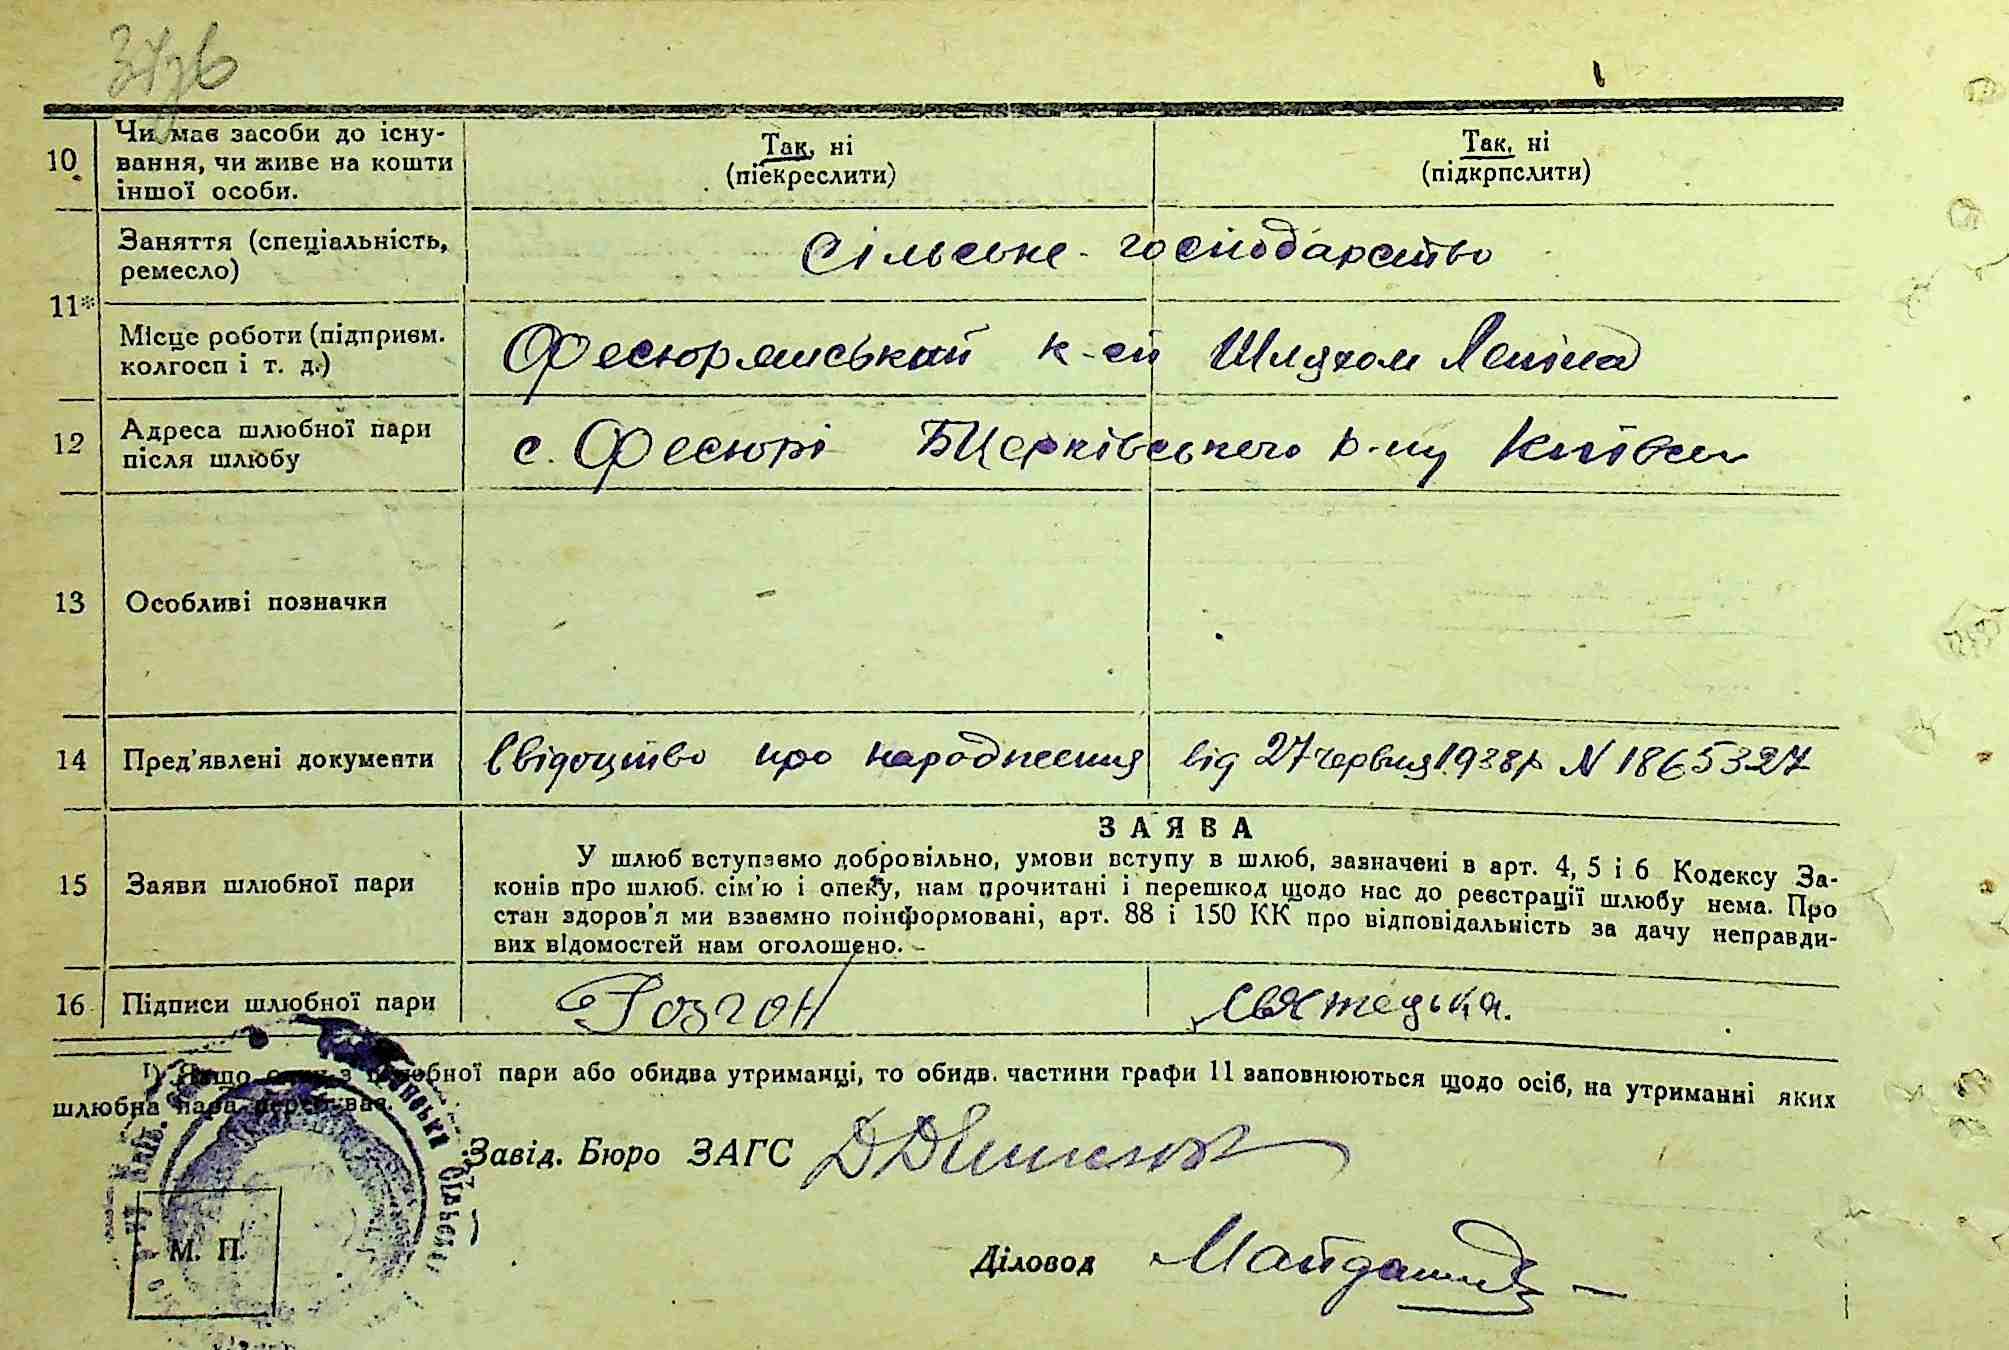 10
Чи має засоби до існу-
вання, чи живе на кошти
іншої особи.
Так, ні
(піекреслити)
Так, ні
(підкрпслити)
11*
Заняття (спеціальність,
ремесло)
Сільське-господарство
Місце роботи (підприєм.
колгосп і т. д.)
Фесюрямський к-сп Шляхом Леніна
12
Адреса шлюбної пари
після шлюбу
с. Фесюрі БЦерківського р-ну Київськ
13
Особливі позначки
14
Пред'явлені документи
Свідоцтво про народження від 27 червня 1938р N 1865327
З А Я В А
15
Заяви шлюбної пари
У шлюб вступаємо добровільно, умови вступу в шлюб, зазначені в арт. 4, 5 і 6 Кодексу За-
конів про шлюб. сім'ю і опеку, нам прочитані і перешкод щодо нас до реєстрації шлюбу нема. Про
стан здоров'я ми взаємно поінформовані, арт. 88 і 150 КК про відповідальність за дачу неправди-
вих відомостей нам оголошено.
16
Підписи шлюбної пари
Розгон
Святецька.
1) Якщо один з шлюбної пари або обидва утриманці, то обидв. частини графи 11 заповнюються щодо осіб, на утриманні яких
шлюбна пара перебуває.
Завід. Бюро ЗАГС
М. П.
Діловод